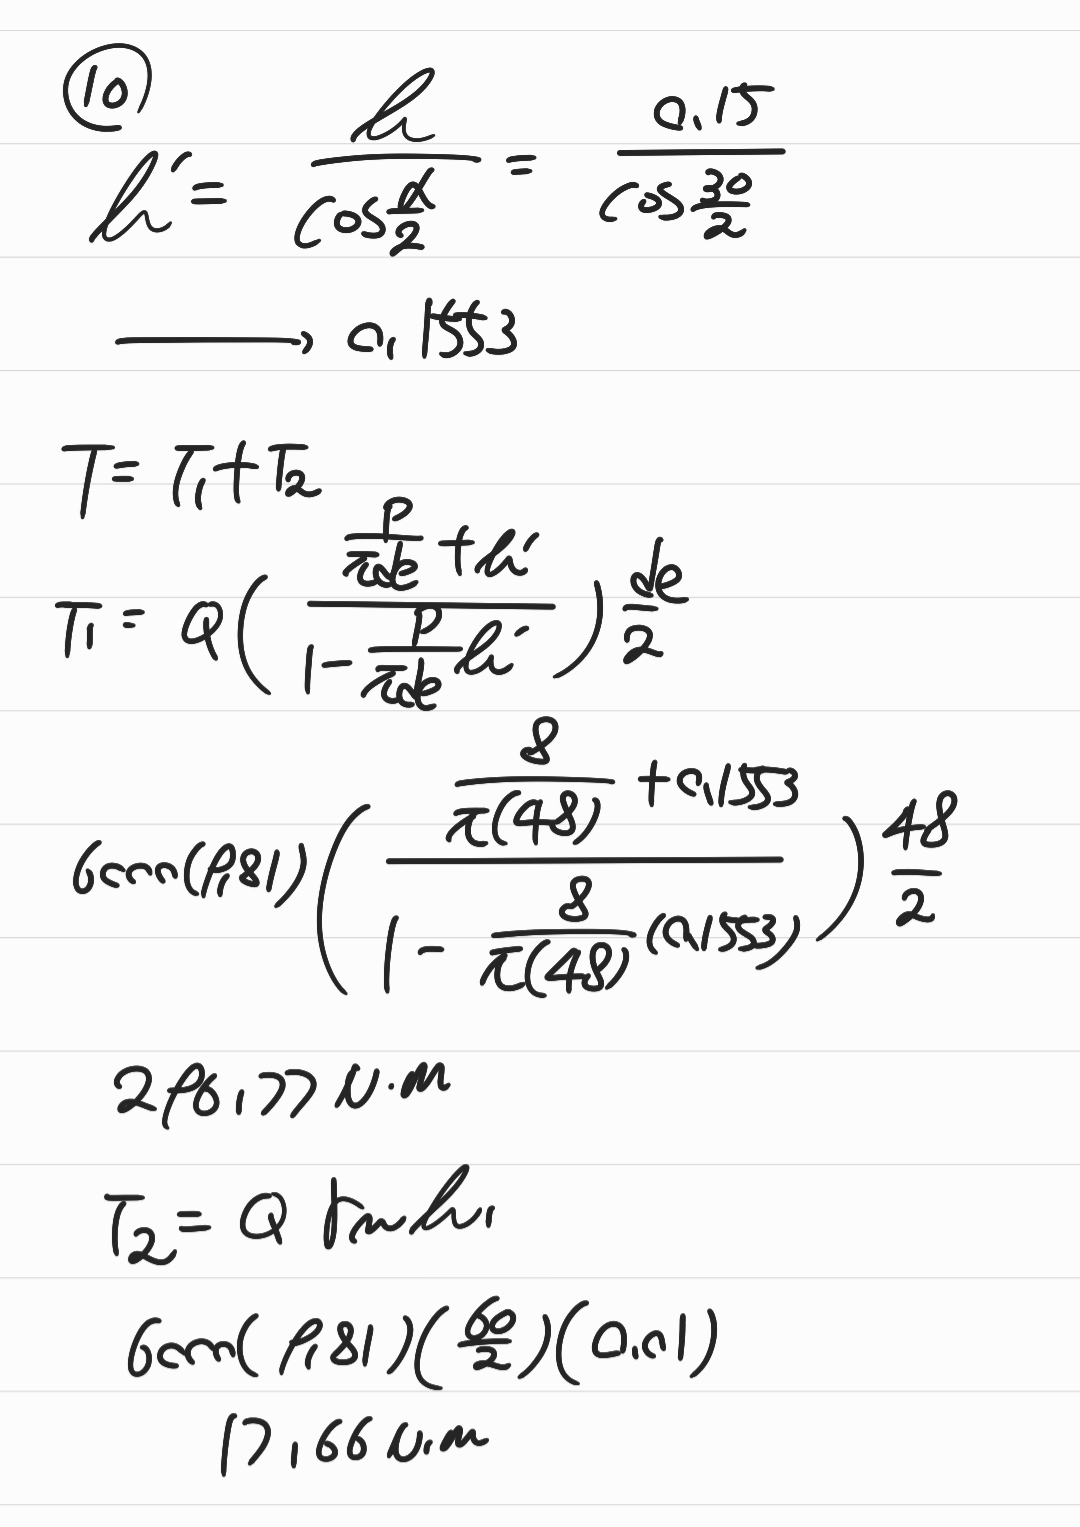 ⑩
μ' = μ / cos α/2 = 0.15 / cos 30/2
⟶ 0.1553
T = T₁ + T₂
T₁ = Q ( (p/πde + μ') / (1 - p/πde μ') ) de/2
6000(9.81) ( (8/π(48) + 0.1553) / (1 - 8/π(48) (0.1553)) ) 48/2
296.77 N.m
T₂ = Q rm μ₁
6000(9.81)(60/2)(0.01)
17.66 N.m